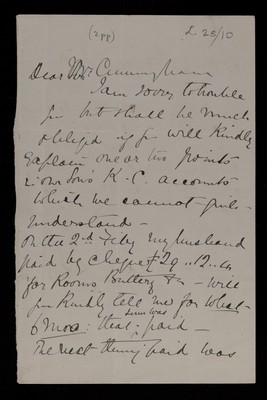 (2pp)
L 28/10
Dear Mr. Cunningham
I am sorry to trouble
you but shall be much
obliged if you will kindly
explain one or two points
in our Son's K.C. accounts
which we cannot quite
understand -
on the 2nd Feby my husband
paid by cheque £29..12..
for Rooms Buttery &c - Will
you kindly tell me for what
6 mos: that sum was paid -
The next thing paid was